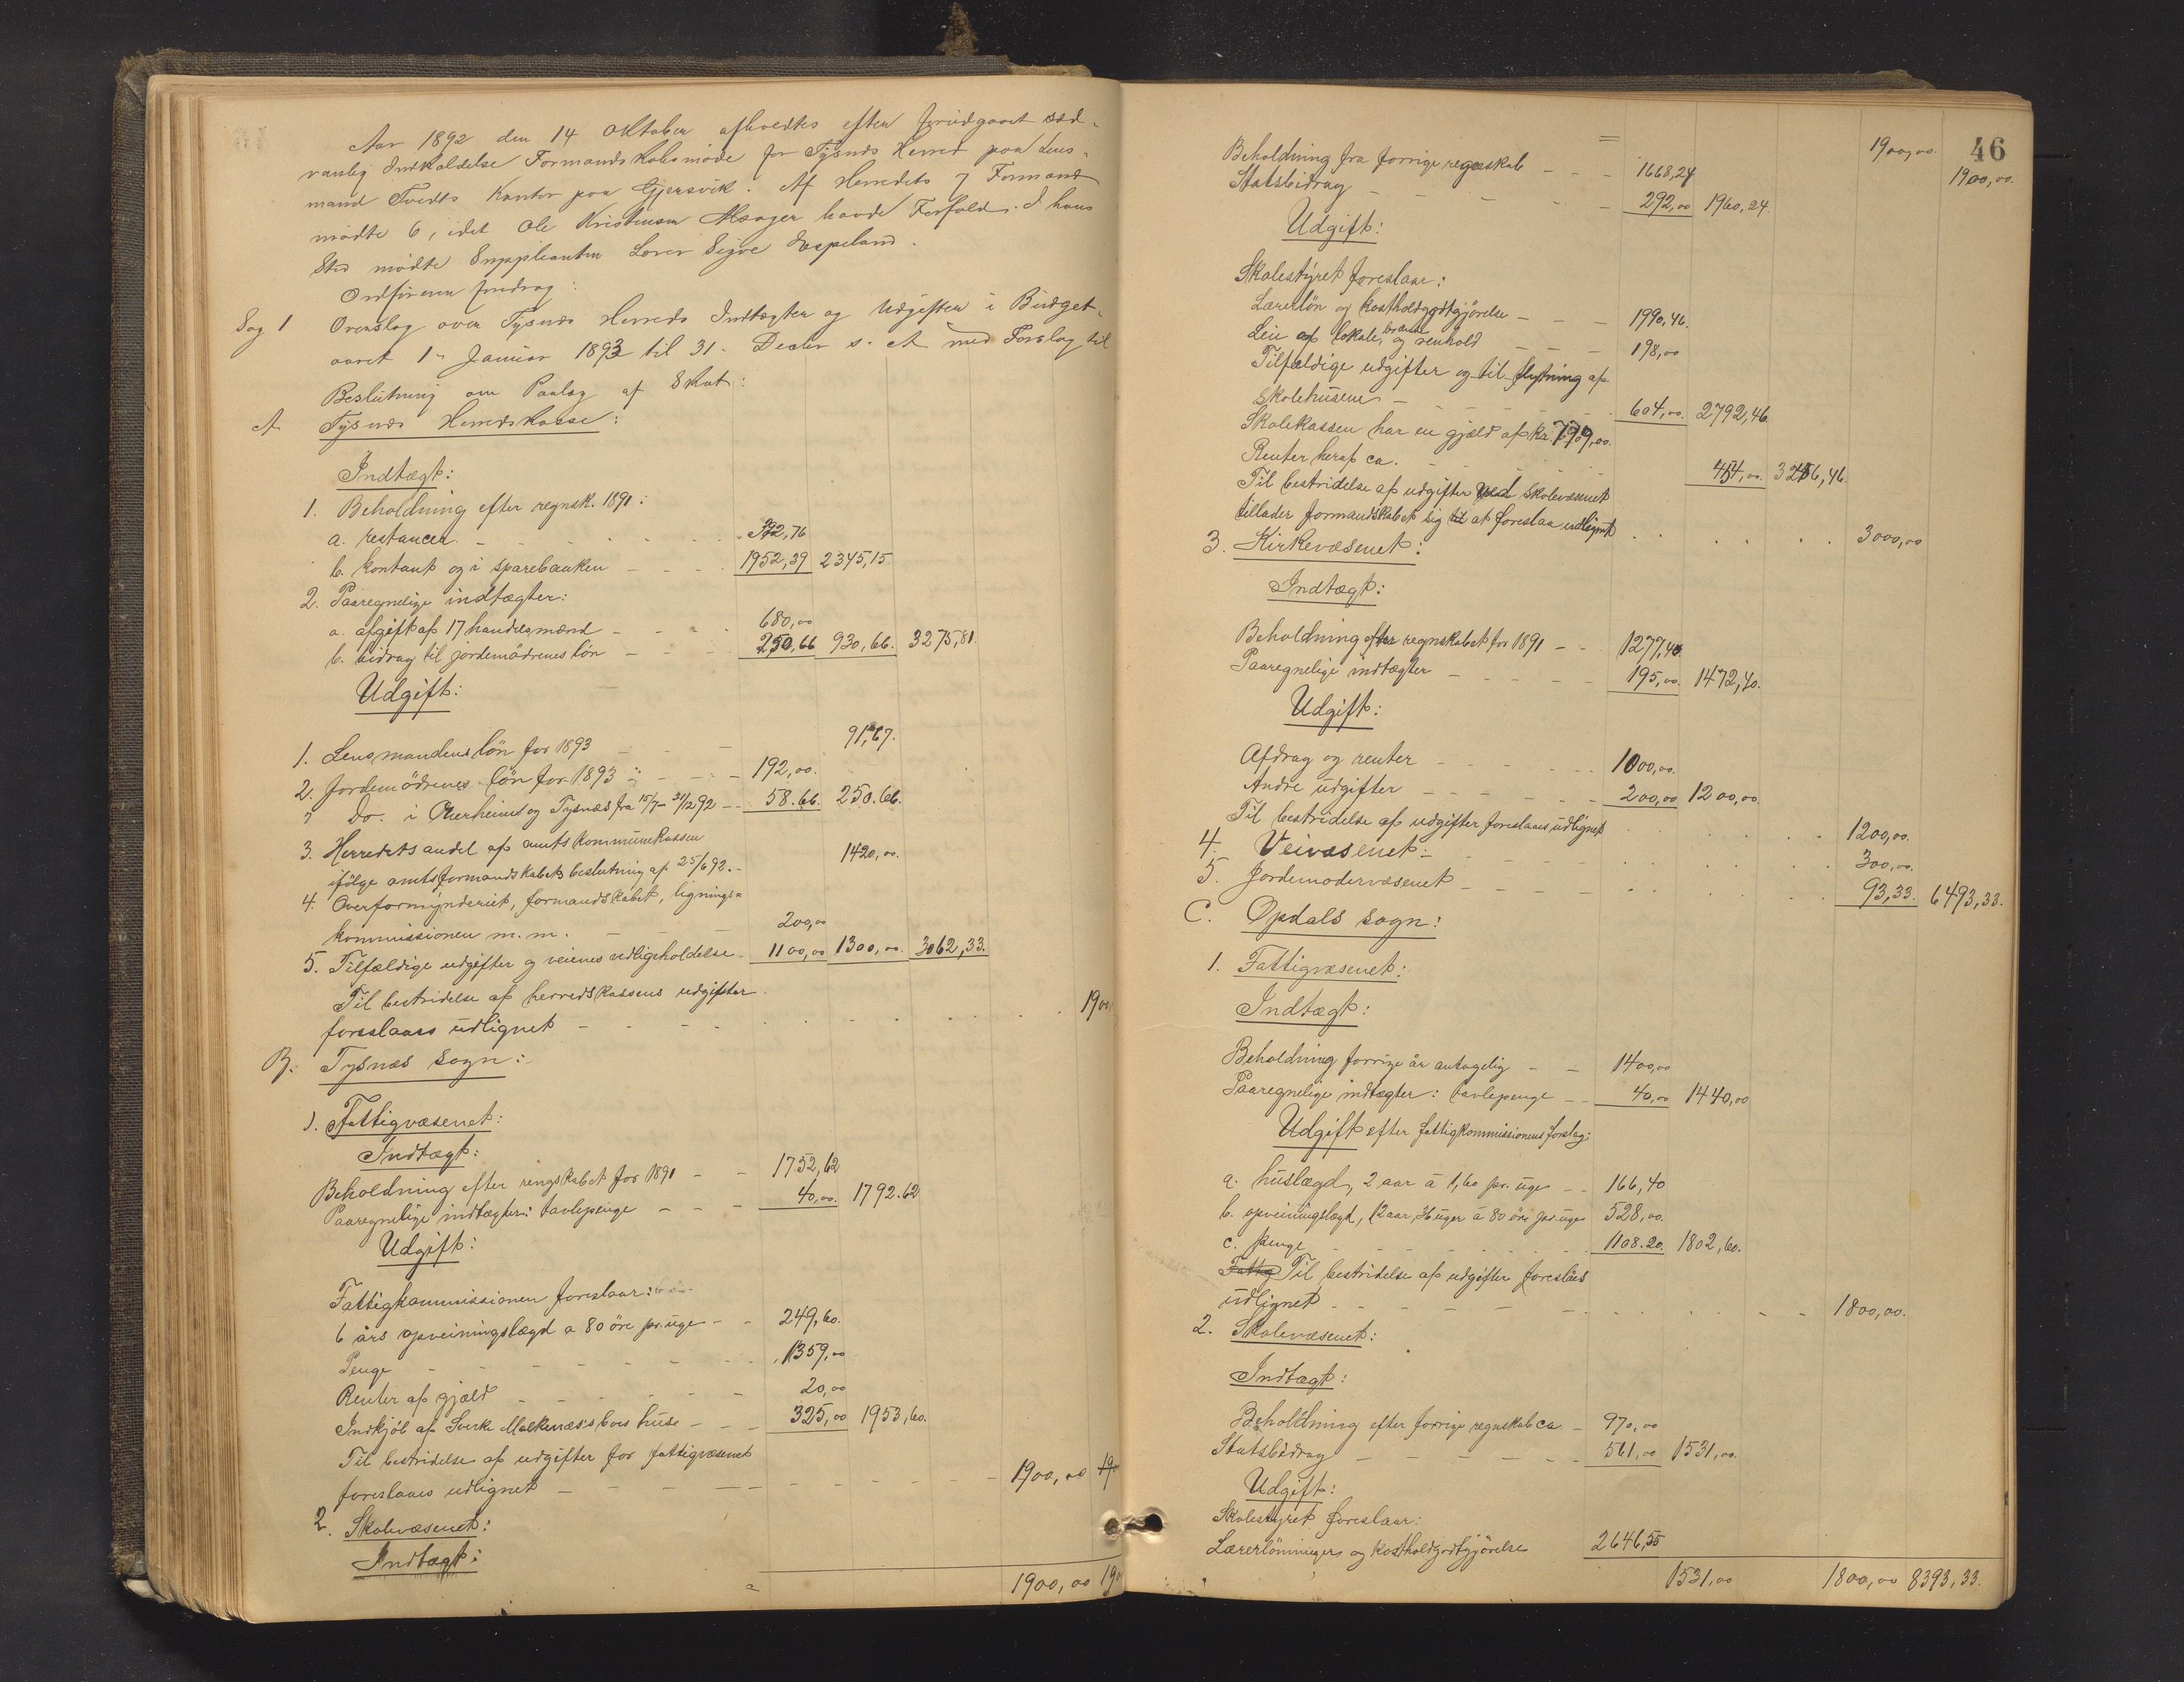 Aar 1892 den 14 Oktober afholdtes efter forudgaaet sæd-
vanlig Indkaldelse Formandskabsmöde for Tysnes Herred paa Lens-
mand Tvedts Kontor paa Gjersvik. Af Herredets 7 Formænd
mödte 6, idet Ole Kristensen havde Forfald. I hans
Sted mödte Suppleanten Lars Sigve Espeland.
Ordföreren foredrog:
Sag 1 Overslag over Tysnes Herreds Indtægter og Udgifter i Budget-
aaret 1ste Januar 1893 til 31. Decbr s. A med Forslag til
Beslutning om Paalæg af Skat:
A Tysnes Herredskasse:
Indtægt:
1. Beholdning efter regnsk. 1891:
a. restancer 392,76
b. kontant og i sparebanken 1952,39 2345,15
2. Paaregnelige indtægter:
a. afgift af 17 handelsmænd 680,00
b. bidrag til jordemödrenes lön 250,66 930,66. 3275,81
Udgift:
1. Lensmandens lön for 1893 91,67.
2. Jordemödrenes lön for 1893 192,00.
" Do. i Onerheims og Tysnæs fra 15/7 - 31/12 92 58.66. 250.66.
3. Herredets andel af amtskommunekassen
ifölge amtsformandskabets beslutning af 25/6 92. 1420,00.
4. Overformynderiet, formandskabet, lignings-
kommissionen m. m. 200,00
5. Tilfældige udgifter og veienes vedligeholdelse 1100,00 1300,00. 3062,33.
Til bestridelse af herredskassens udgifter
foreslaaes udlignet 1900,
B. Tysnæs sogn:
1. Fattigvæsenet:
Indtægt:
Beholdning efter rengskabet for 1891 1752,62
Paaregnelige indtægter: tavlepenge 40,00. 1792.62
Udgift:
Fattigkommissionen foreslaar:
6 års opveiningslægd a 80 öre pr. uge 249,60.
Penge 1359,00
Renter af gjæld 20,00
Indkjöb af Sverke Malkenæs's boes huse 325,00 1953,60.
Til bestridelse af udgifter for fattigvæsenet
foreslaaes udlignet 1900,00 190
2. Skolevæsenet:
Indtægt:
1900,00 190
46
1900,00. 1900,00.
Beholdning fra forrige regnskab 1668,24
Statsbidrag 292,00 1960,24.
Udgift:
Skolestyret foreslaar:
Lærerlön og kostholdgodtgjörelse 1990,46.
Leie af lokale, brænde og renhold 198,00
Tilfældige udgifter og til flytning af
skolehusene 604,00. 2792,46
Skolekassen har en gjæld af kr. 799,00.
Renter heraf ca. 454,00. 3246,46.
Til bestridelse af udgifter ved skolevæsenet
tillader formandskabet sig til at foreslaa udlignet 3000,00
3. Kirkevæsenet:
Indtægt:
Beholdning efter regnskabet for 1891 1277,40
Paaregnelige indtægter 195,00. 1472,40.
Udgift:
Afdrag og renter 1000,00.
Andre udgifter 200,00 1200,00.
Til bestridelse af udgifter foreslaaes udlignet 1200,00.
4. Veivæsenet: 300,00.
5. Jordemodervæsenet 93,33. 6493,33.
C. Opdals sogn:
1. Fattigvæsenet:
Indtægt:
Beholdning forrige år antagelig 1400,00
Paaregnelige indtægter: tavlepenge 40,00 1440,00
Udgift efter fattigkommissionens forslag:
a. huslægd, 2 aar à 1,60 pr. uge 166,40
b. opveiningslægd, 12 aar, 36 uger à 80 öre pr. uge 528,00.
c. Penge 1108.20. 1802,60.
Fattig Til bestridelse af udgifter foreslåes
udlignet 1800,00.
2. Skolevæsenet:
Indtægt:
Beholdning efter forrige regnskab ca 970,00
Statsbidrag 561,00 1531,00.
Udgift:
Skolestyret foreslaar:
Lærerlönninger og kostholdgodtgjörelse 2646,55
1531,00 1800,00 8393,33.